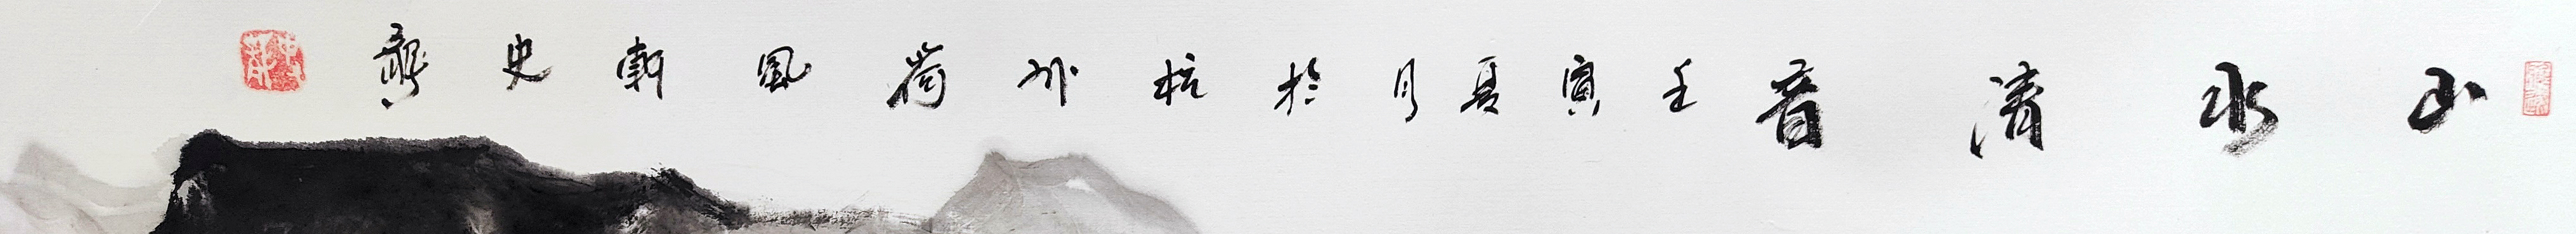 山水清音 壬寅夏月於杭州荷風軒史龔